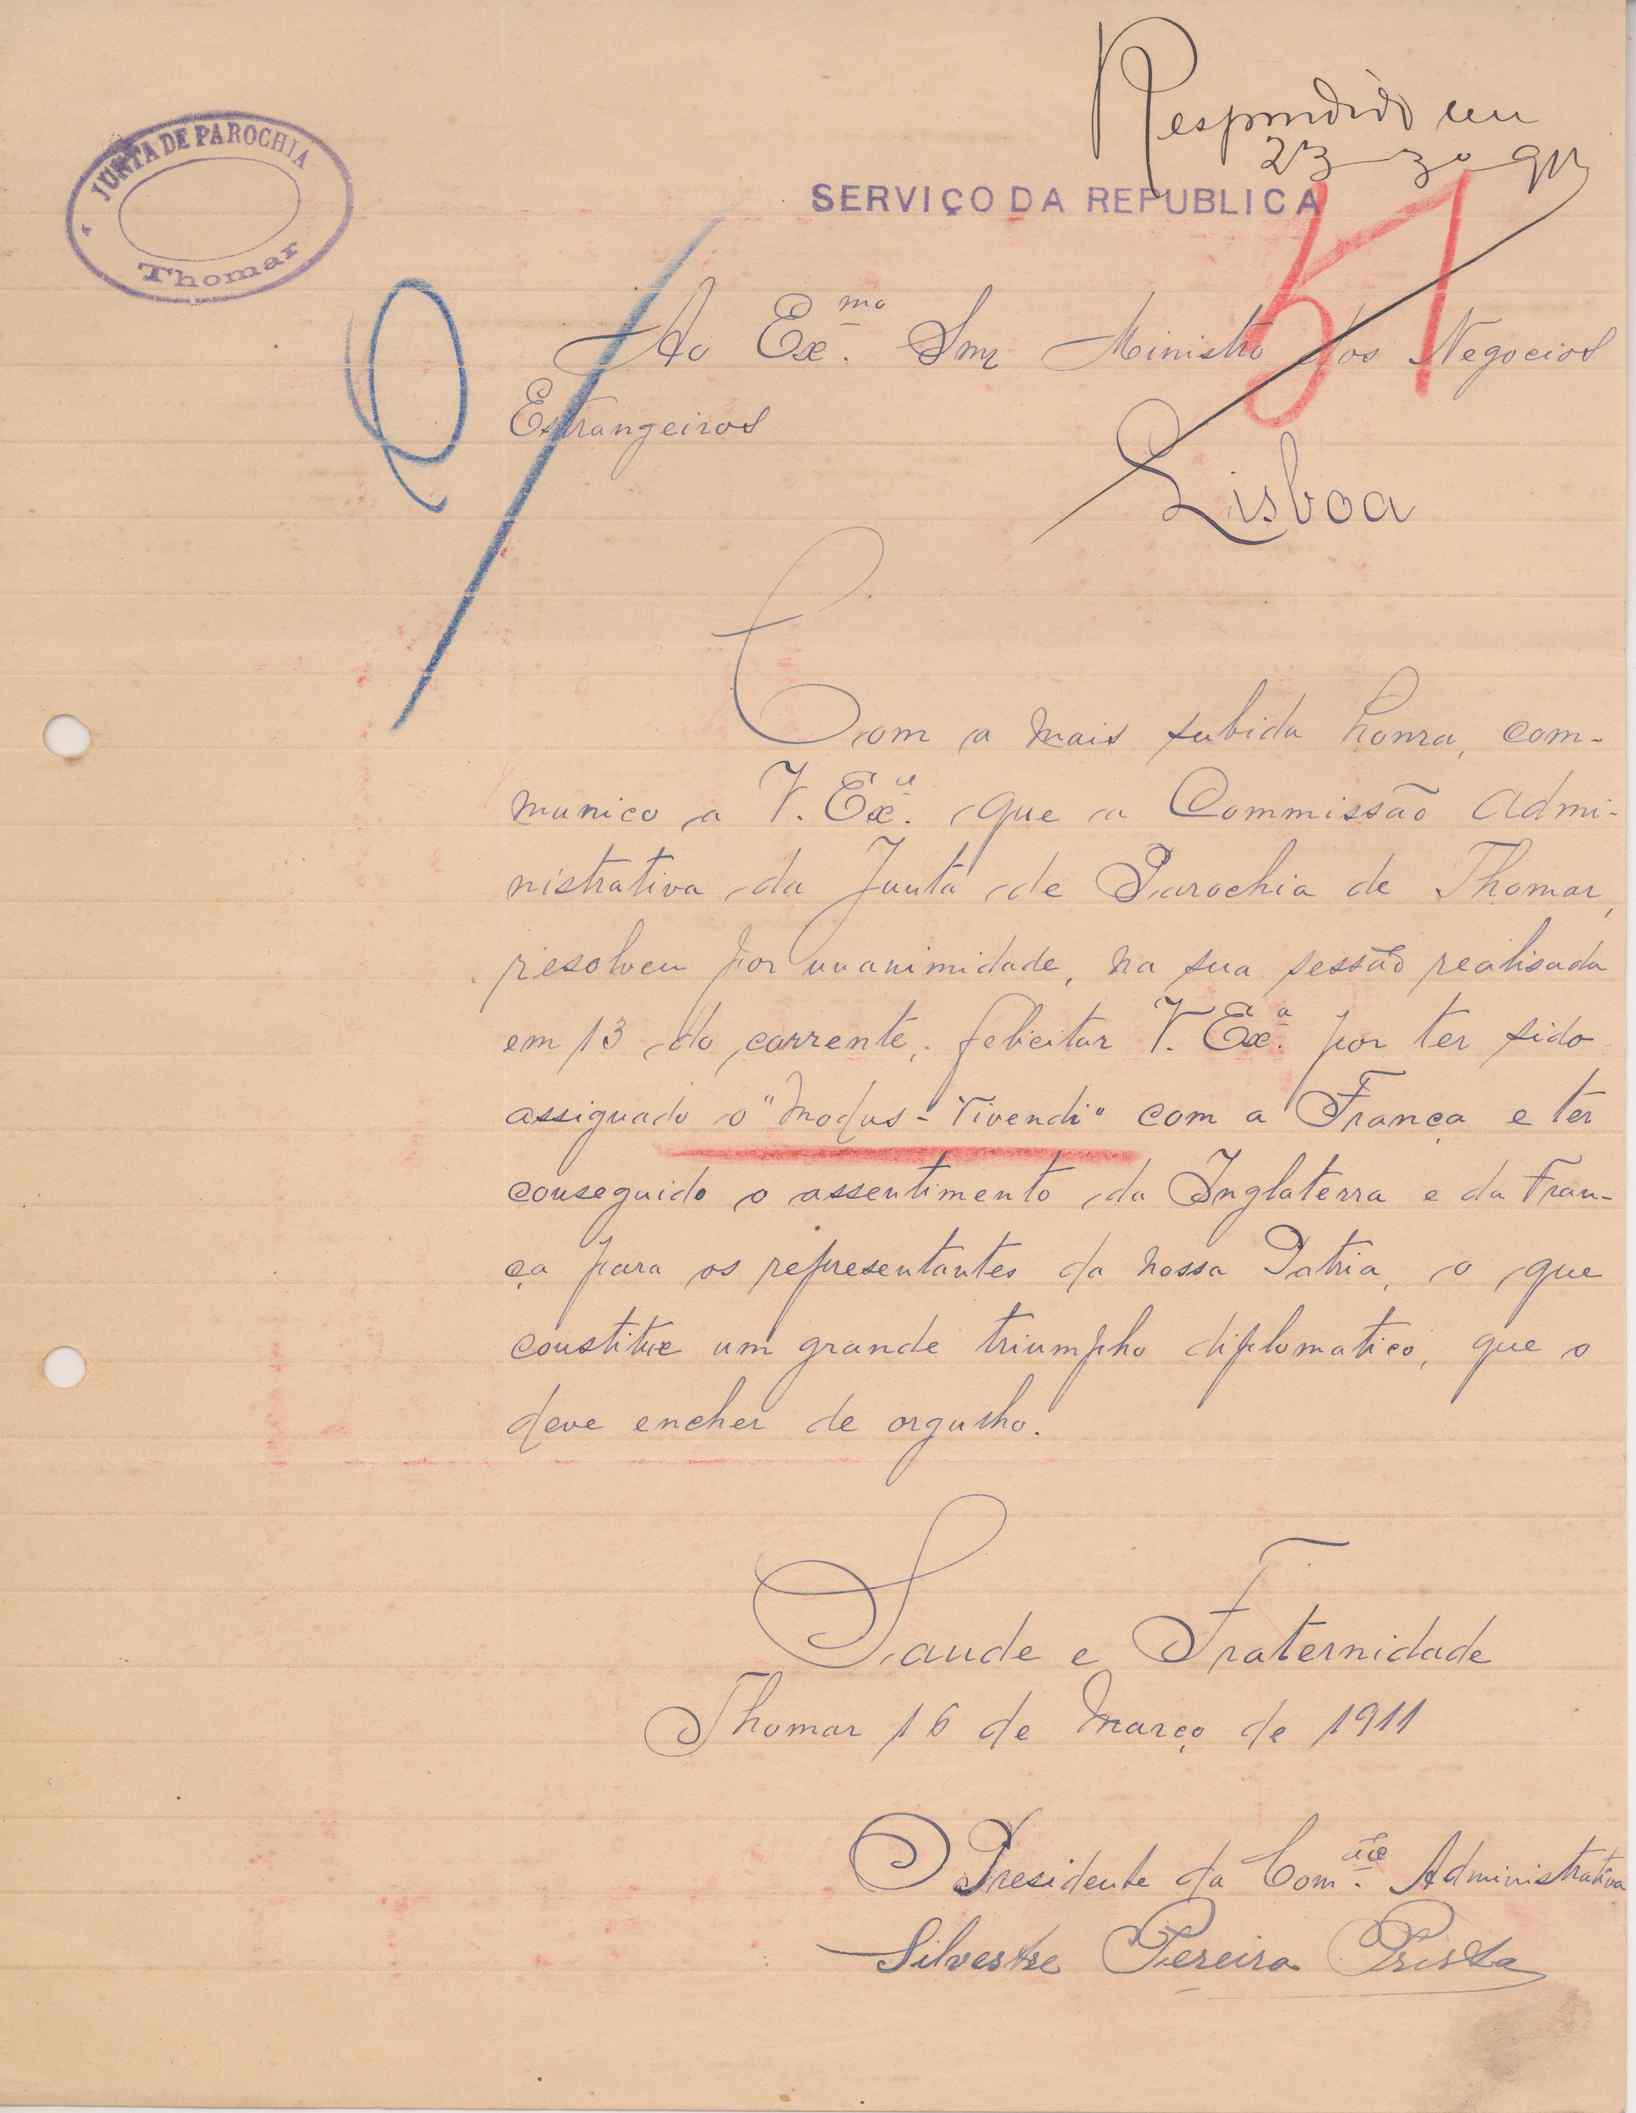 Respondido em
23-3o-911
JUNTA DE PAROCHIA
Thomar
SERVIÇO DA REPUBLICA
51
Ao Ex.mo Snr Ministro dos Negocios
Estrangeiros
Lisboa
Com a mais subida honra, com-
munico a V. Ex.a que a Commissão Admi-
nistrativa da Junta de Parochia de Thomar,
resolveu por unanimidade, na sua sessão realisada
em 13 do corrente, felicitar V. Ex.a por ter sido
assignado o "Modus-Vivendi" com a França e ter
conseguido o assentimento da Inglaterra e da Fran-
ça para os representantes da nossa Patria, o que
constitue um grande triumpho diplomatico, que o
deve encher de orgulho.
Saude e Fraternidade
Thomar 16 de Março de 1911
O Presidente da Com.ão Administrativa
Silvestre Pereira Prista